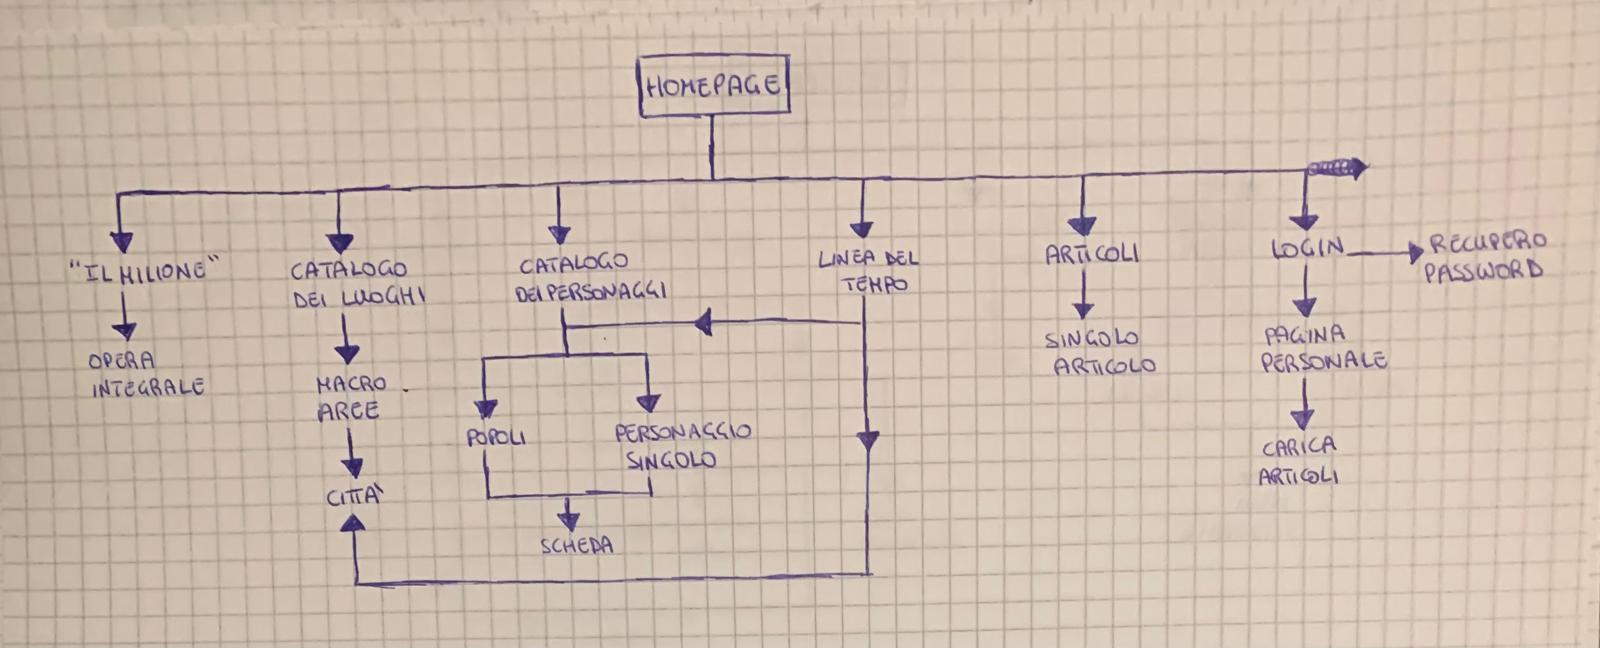 HOMEPAGE
"IL MILIONE"
OPERA
INTEGRALE
CATALOGO
DEI LUOGHI
MACRO
AREE
CITTÀ
CATALOGO
DEI PERSONAGGI
POPOLI
PERSONAGGIO
SINGOLO
SCHEDA
LINEA DEL
TEMPO
ARTICOLI
SINGOLO
ARTICOLO
LOGIN
RECUPERO
PASSWORD
PAGINA
PERSONALE
CARICA
ARTICOLI